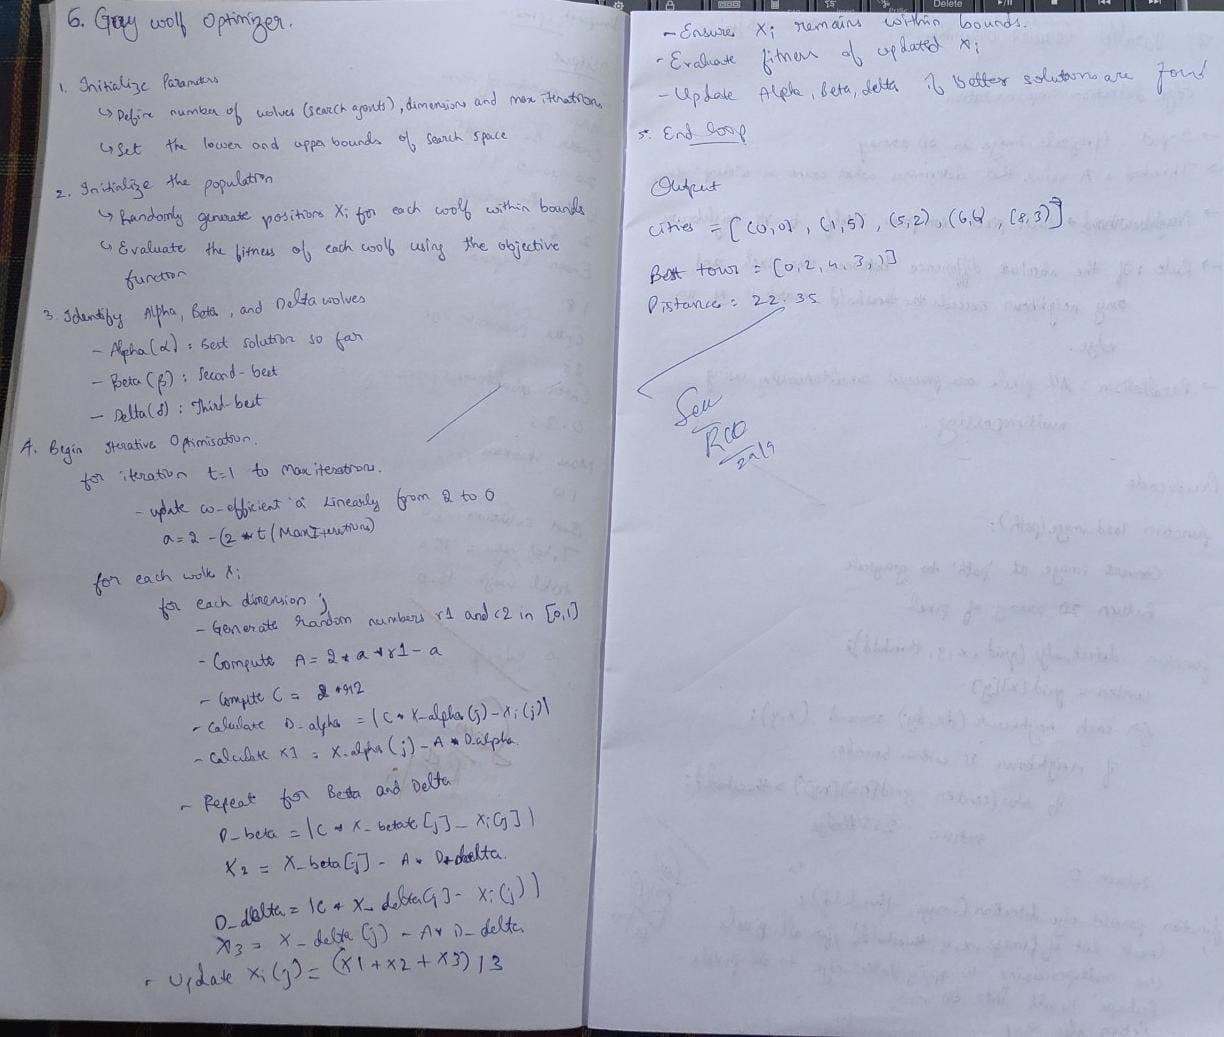 6. Gray woolf Optimizer.
1. Initialize Parameters
↳ Define number of wolves (search agents), dimensions and max iterations
↳ Set the lower and upper bounds of search space
2. Initialize the population
↳ Randomly generate positions Xi for each woolf within bounds
↳ Evaluate the fitness of each woolf using the objective
function
3. Identify Alpha, Beta, and Delta wolves
- Alpha (α) : Best solution so far
- Beta (β) : Second-best
- Delta (δ) : Third-best
4. Begin Iterative Optimisation.
for iteration t=1 to max iterations.
- update co-efficient 'a' Linearly from 2 to 0
a = 2 - (2 * t / MaxIterations)
for each wolk Xi
for each dimension j
- Generate random numbers r1 and r2 in [0,1]
- Compute A = 2 * a * r1 - a
- Compute C = 2 * r2
- Calculate D_alpha = | C * X_alpha (j) - Xi (j) |
- Calculate X1 = X_alpha (j) - A * D_alpha.
- Repeat for Beta and Delta
D_beta = | C * X_beta [j] - Xi [j] |
X2 = X_beta [j] - A * D_delta.
D_delta = | C * X_delta [j] - Xi (j) |
X3 = X_delta (j) - A * D_delta.
- Update Xi (j) = (X1 + X2 + X3) / 3
- Ensure Xi remains within bounds.
- Evaluate fitness of updated Xi
- Update Alpha, Beta, delta if better solutions are found
5. End loop
Output
Cities = [(0,0), (1,5), (5,2), (6,6), (8,3)]
Best tour = [0, 2, 4, 3, 1]
Distance : 22.35
Delete